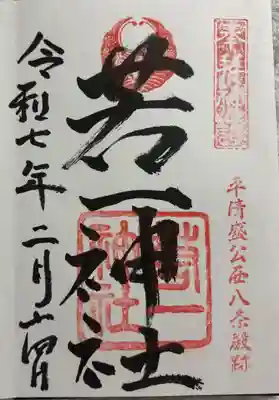 平清盛公西八条殿跡
若一神社
若一
神社
令和七年二月廿四日